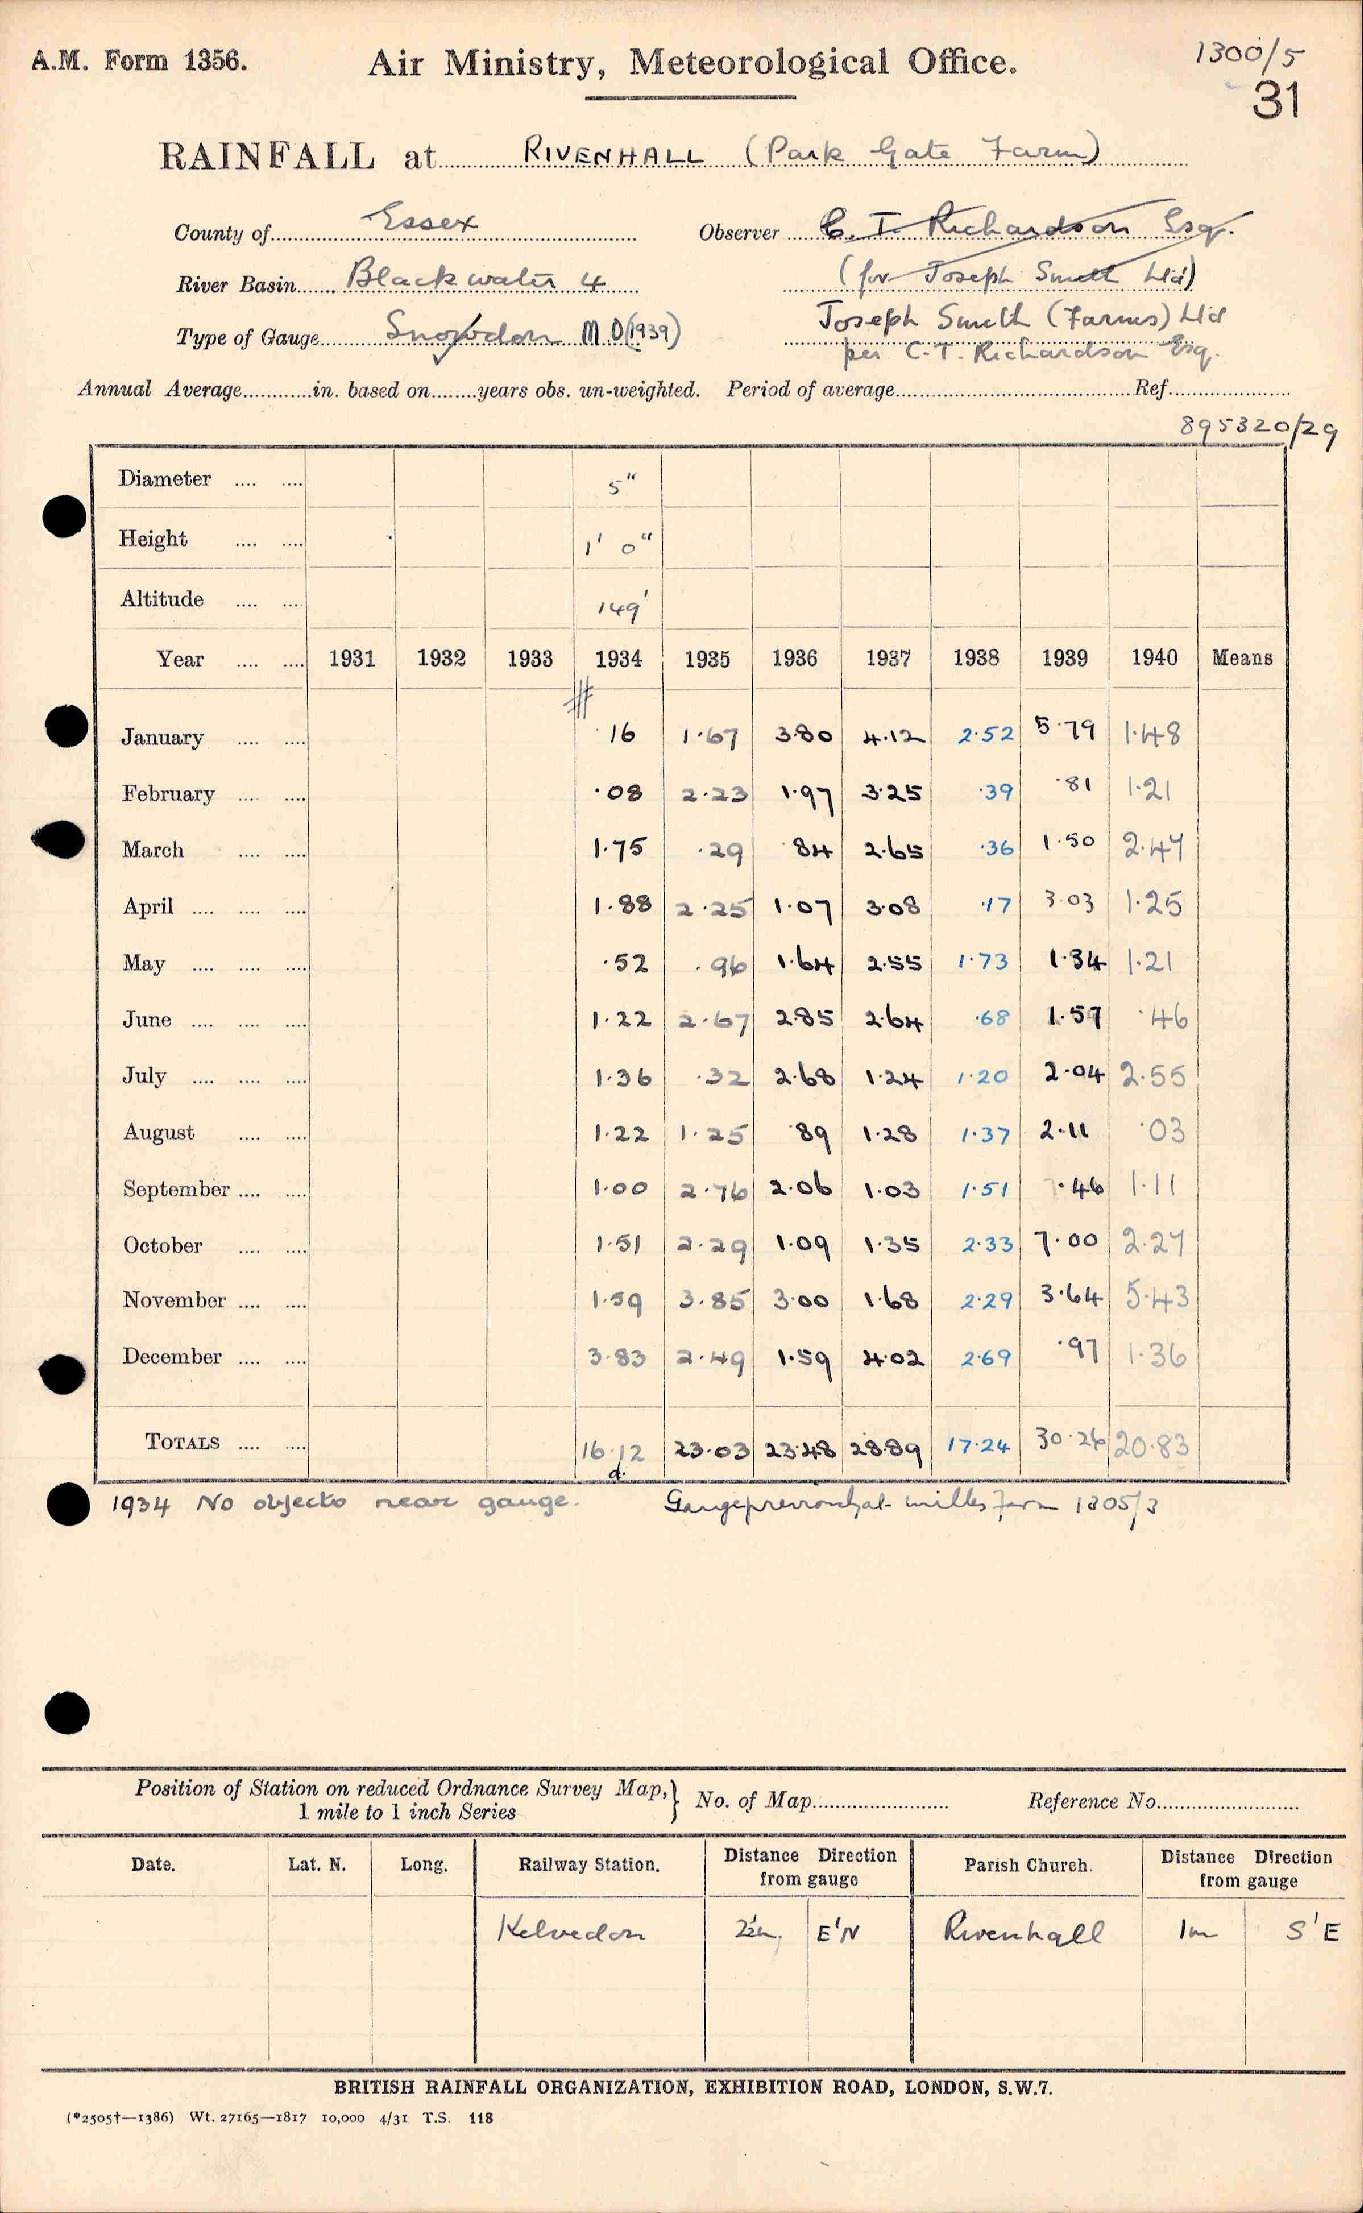 A.M. Form 1356.
Air Ministry, Meteorological Office.
1300/5
31
RAINFALL at RIVENHALL (Park Gate Farm)
County of Essex
Observer C. T. Richardson Esq.
River Basin Blackwater 4
(for Joseph Smith Ltd)
Type of Gauge Snowdon M O (1939)
Joseph Smith (Farms) Ltd
per C.T. Richardson Esq.
Annual Average in. based on years obs. un-weighted. Period of average Ref.
895320/29
Diameter 5"
Height 1' 0"
Altitude 149'
Year 1931 1932 1933 1934 1935 1936 1937 1938 1939 1940 Means
#
January ·16 1·67 3·80 4·12 2·52 5·79 1·48
February ·08 2·23 1·97 3·25 ·39 ·81 1·21
March 1·75 ·29 ·84 2·65 ·36 1·50 2·47
April 1·88 2·25 1·07 3·08 ·17 3·03 1·25
May ·52 ·96 1·64 2·55 1·73 1·34 1·21
June 1·22 2·67 2·85 2·64 ·68 1·57 ·46
July 1·36 ·32 2·68 1·24 1·20 2·04 2·55
August 1·22 1·25 ·89 1·28 1·37 2·11 ·03
September 1·00 2·76 2·06 1·03 1·51 ·46 1·11
October 1·51 2·29 1·09 1·35 2·33 7·00 2·27
November 1·59 3·85 3·00 1·68 2·29 3·64 5·43
December 3·83 2·49 1·59 4·02 2·69 ·97 1·36
TOTALS 16·12 23·03 23·48 28·89 17·24 30·26 20·83
d.
1934 No objects near gauge. Gauge previously at Mills Farm 1305/3
Position of Station on reduced Ordnance Survey Map, } No. of Map Reference No.
1 mile to 1 inch Series
Date. Lat. N. Long. Railway Station. Distance Direction from gauge Parish Church. Distance Direction from gauge
Kelvedon E'N Rivenhall 1m S'E
BRITISH RAINFALL ORGANIZATION, EXHIBITION ROAD, LONDON, S.W.7.
(*2505†—1386) Wt. 27165—1817 10,000 4/31 T.S. 118